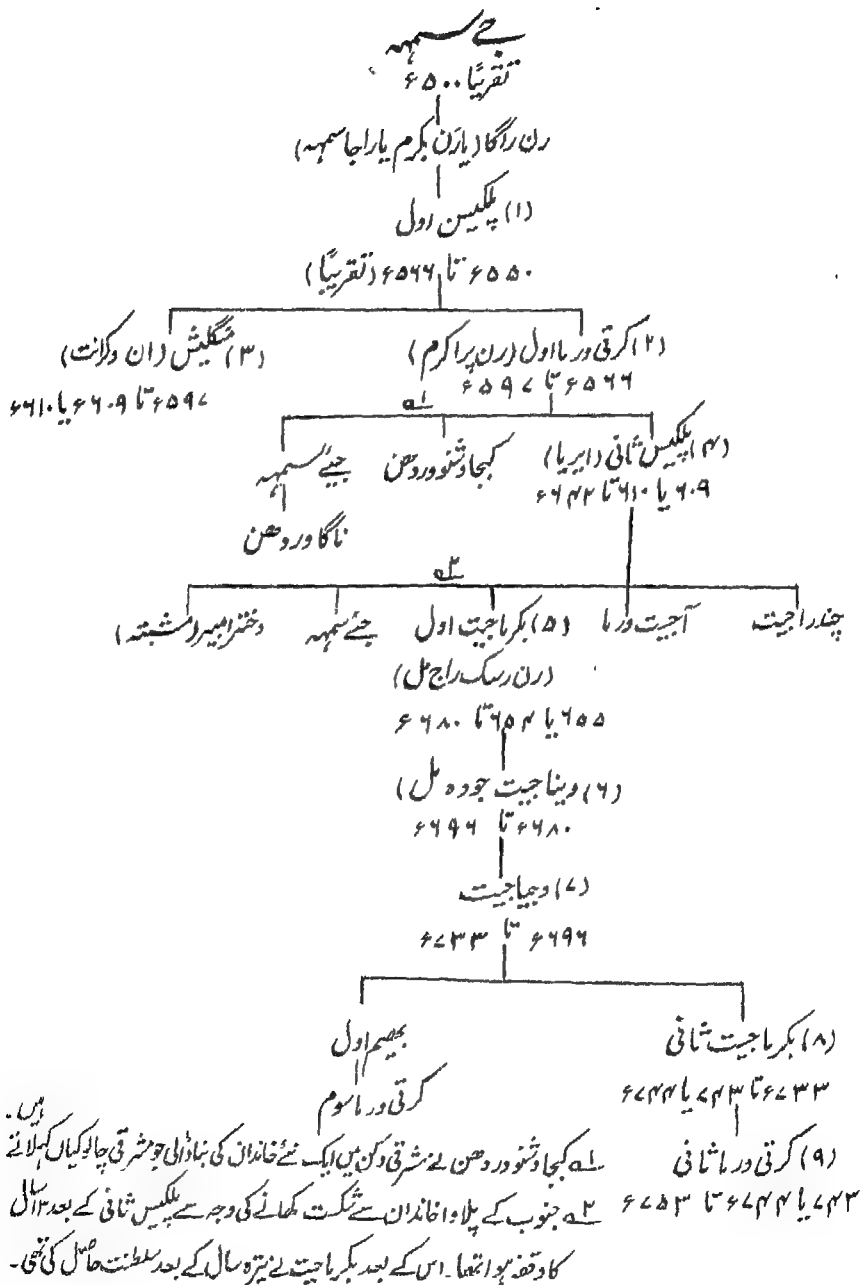 جے سمہہ
تقریبًا ۵۰۰ء
رن راگا (یا رَن بکرم یا راجا سمہہ)
(۱) پلکیسن اول
۵۵۰ء تا ۵۶۶ء (تقریبًا)
(۲) کرتی ورما اول (رن پراکرم)
۵۶۶ء تا ۵۹۷ء
(۳) منگلیش (ان وکرانت)
۵۹۷ء تا ۶۰۹ء یا ۶۱۰ء
۱ہ
(۴) پلکیس ثانی (ایریا)
۶۰۹ یا ۶۱۰ تا ۶۴۲ء
کبجا وشنو وردھن
جئے سمہہ
ناگا وردھن
۲ہ
چندراجیت
آجیت ورما
(۵) بکرماجیت اول
(رن رسک راج مل)
۶۵۵ یا ۶۵۴ تا ۶۸۰ء
جئے سمہہ
دختر امیرا (مشتبہ)
(۶) ویناجیت جودہ مل)
۶۸۰ء تا ۶۹۶ء
(۷) وجیاجیت
۶۹۶ء تا ۷۳۳ء
(۸) بکرماجیت ثانی
۷۳۳ء تا ۷۴۳ یا ۷۴۴ء
بھیم اول
کرتی ورما سوم
(۹) کرتی ورما ثانی
۷۴۳ یا ۷۴۴ء تا ۷۵۳ء
۱ہ کبجا وشنو وردھن نے مشرقی دکن میں ایک نئے خاندان کی بنا ڈالی جو مشرقی چالوکیاں کہلاتے ہیں۔
۲ہ جنوب کے پلاوا خاندان سے شکست کھانے کی وجہ سے پلکیس ثانی کے بعد ۱۳ سال
کا وقفہ ہوا تھا۔ اس کے بعد بکرماجیت نے تیرہ سال کے بعد سلطنت حاصل کی تھی۔